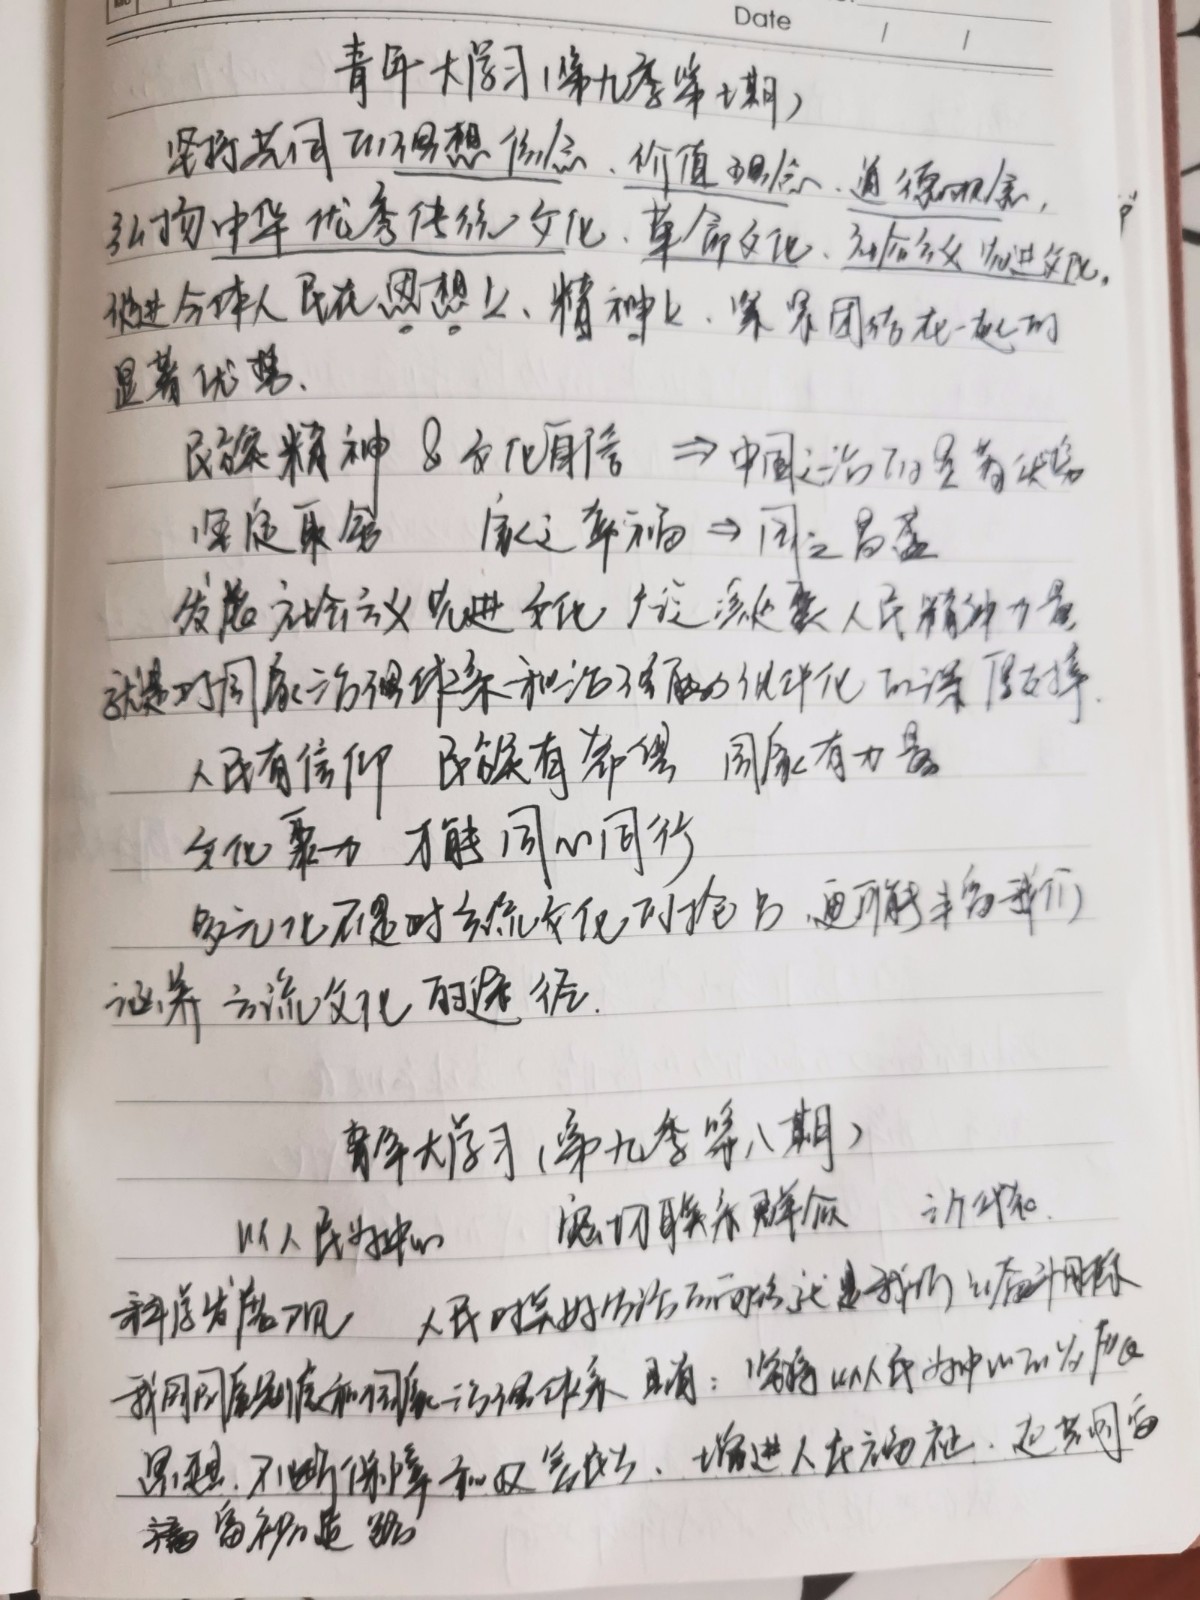 Date / /
青年大学习(第九季第七期)
坚持共同的理想信念、价值理念、道德观念,
弘扬中华优秀传统文化、革命文化、社会主义先进文化,
促进全体人民在思想上、精神上、紧紧团结在一起的
显著优势.
民族精神 & 文化自信 ⇒ 中国之治的显著优势
坚定取舍 家之幸福 ⇒ 国之昌盛
发展社会主义先进文化 广泛凝聚人民精神力量
就是对国家治理体系和治理能力现代化的深厚支撑.
人民有信仰 民族有希望 国家有力量
文化聚力 才能同心同行
多元化不是对主流文化的抢占,更可能丰富我们
涵养主流文化的途径.
青年大学习(第九季第八期)
以人民为中心 密切联系群众
科学发展观 人民对美好生活的向往就是我们的奋斗目标
我国国家制度和国家治理体系具有:坚持以人民为中心的发展
思想、不断保障和改善民生、增进人民福祉、走共同富
裕道路